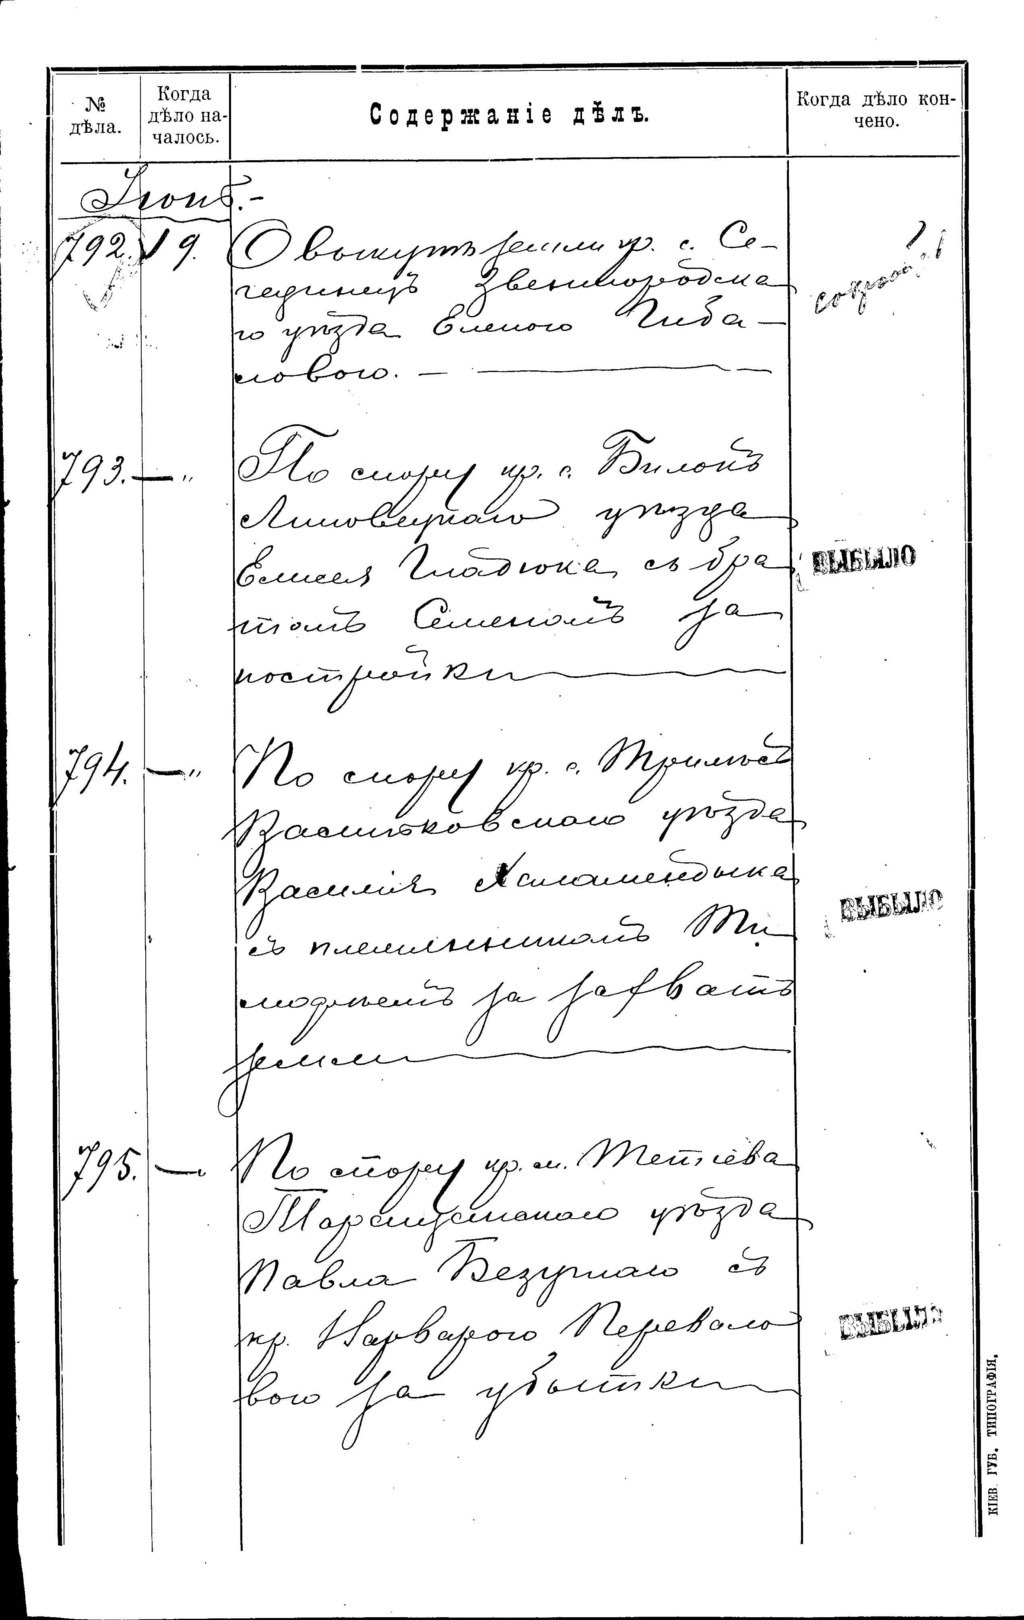 № дѣла.
Когда дѣло началось.
Содержаніе дѣлъ.
Когда дѣло кончено.
792. 19. О выкупѣ земли кр. с. Се-
гединецъ Звенигородска
го уѣзда Еленою Гиба-
ловою. —
793. — " По спору кр. с. Билокъ
Липовецкаго уѣзда
Елисея Гладюка съ бра
томъ Семеномъ за
постройки
ВЫБЫЛО
794. — " По спору кр. с.
Васильковскаго уѣзда
Василія
съ племянникомъ Ти
мофѣемъ за захватъ
земли
ВЫБЫЛО
795. — По спору кр. м. Тетіева
Таращанскаго уѣзда
Павла Безуглаго съ
кр. Варварою Перевало
вою за убытки
ВЫБЫЛО
КІЕВ. ГУБ. ТИПОГРАФІЯ.